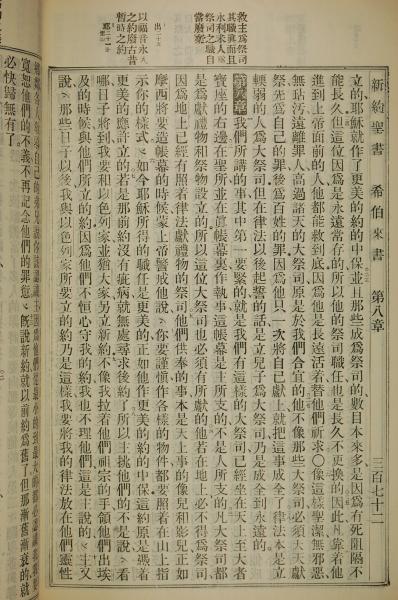 新約聖書 希伯來書 第八章 三百七十二
立的耶穌就作了更美的約的中保並且那些成為祭司的數目本來多是因為有死阻隔不
能長久但這位因為是永遠常存的所以他的祭司職任也是長久不更換的因此凡靠着他
進到上帝面前的人他都能救到底因為他是長遠活着替他們祈求○像這樣聖潔無邪惡
無玷污遠離罪人高過諸天的大祭司原是於我們合宜的他不像那些大祭司必須天天獻
祭先為自己的罪後為百姓的罪因為他只一次將自己獻上就把這事成全了律法本是立
輭弱的人為大祭司但在律法以後起誓的話是立兒子為大祭司乃是成全到永遠的
第八章 我們所講的事其中第一要緊的就是我們有這樣的大祭司已經坐在天上至大者
寶座的右邊在聖所並在真帳幕裏作執事這帳幕是主所支的不是人所支的凡大祭司都
是為獻禮物和祭物設立的所以這位大祭司也必須有所獻的他若在地上必不得為祭司
因為地上已經有照着律法獻禮物的祭司他們供奉的事本是天上事的像兒和影兒正如
摩西將要造帳幕的時候蒙上帝警戒他說你要謹慎作各樣的物件都要照着在山上指
示你的樣式如今耶穌所得的職任是更美的正如他作更美的約的中保這約原是憑着
更美的應許立的若是那前約沒有疵病就無處尋求後約了所以主挑他們的不是說看
哪日子將到我要和以色列家並猶大家另立新約不像我拉着他們祖宗的手領他們出埃
及的時候與他們所立的約因為他們不恒心守我的約我也不理他們這是主說的主又
說那些日子以後我與以色列家所要立的約乃是這樣我要將我的律法放在他們靈性
教主為祭司
其職貴而且
永利未人為
祭司之職自
當廢矣
出
以福音永久
之約廢古昔
暫時之約
寬恕他們的不義不再記念他們的罪愆既說新約就以前約為舊了但那漸舊漸衰的就
必快歸無有了